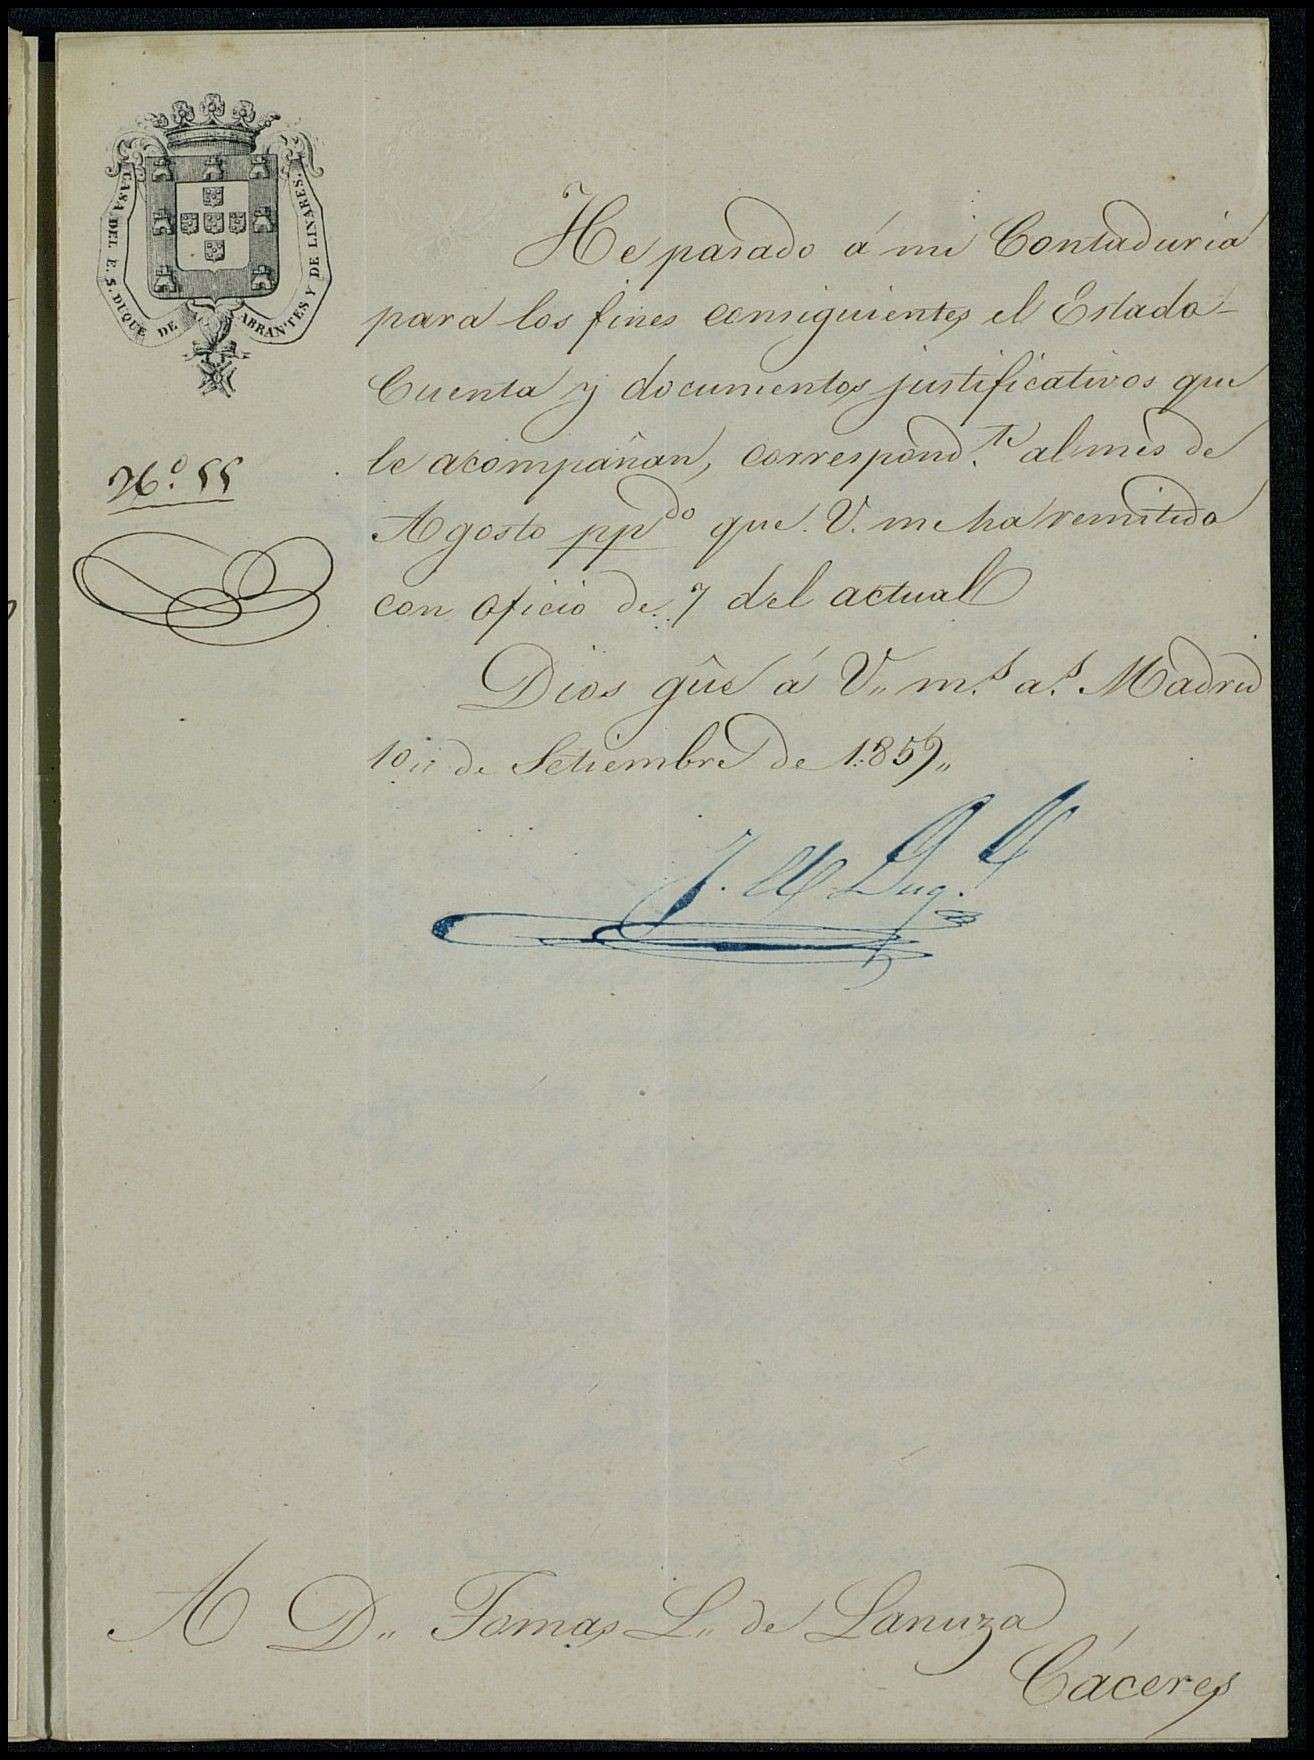 CASA DEL E. S. DUQUE DE ABRANTES Y DE LINARES.
Nº. 55
He pasado á mi Contaduria
para los fines consiguientes el Estado-
Cuenta y documentos justificativos que
le acompañan, correspond.te al mes de
Agosto ppdo que V. me ha remitido
con oficio de 7 del actual
Dios gûe á V,, m.s a.s Madrid
10,, de Setiembre de 1.859,,
A D,, Tomas L,, de Lanuza
Cáceres